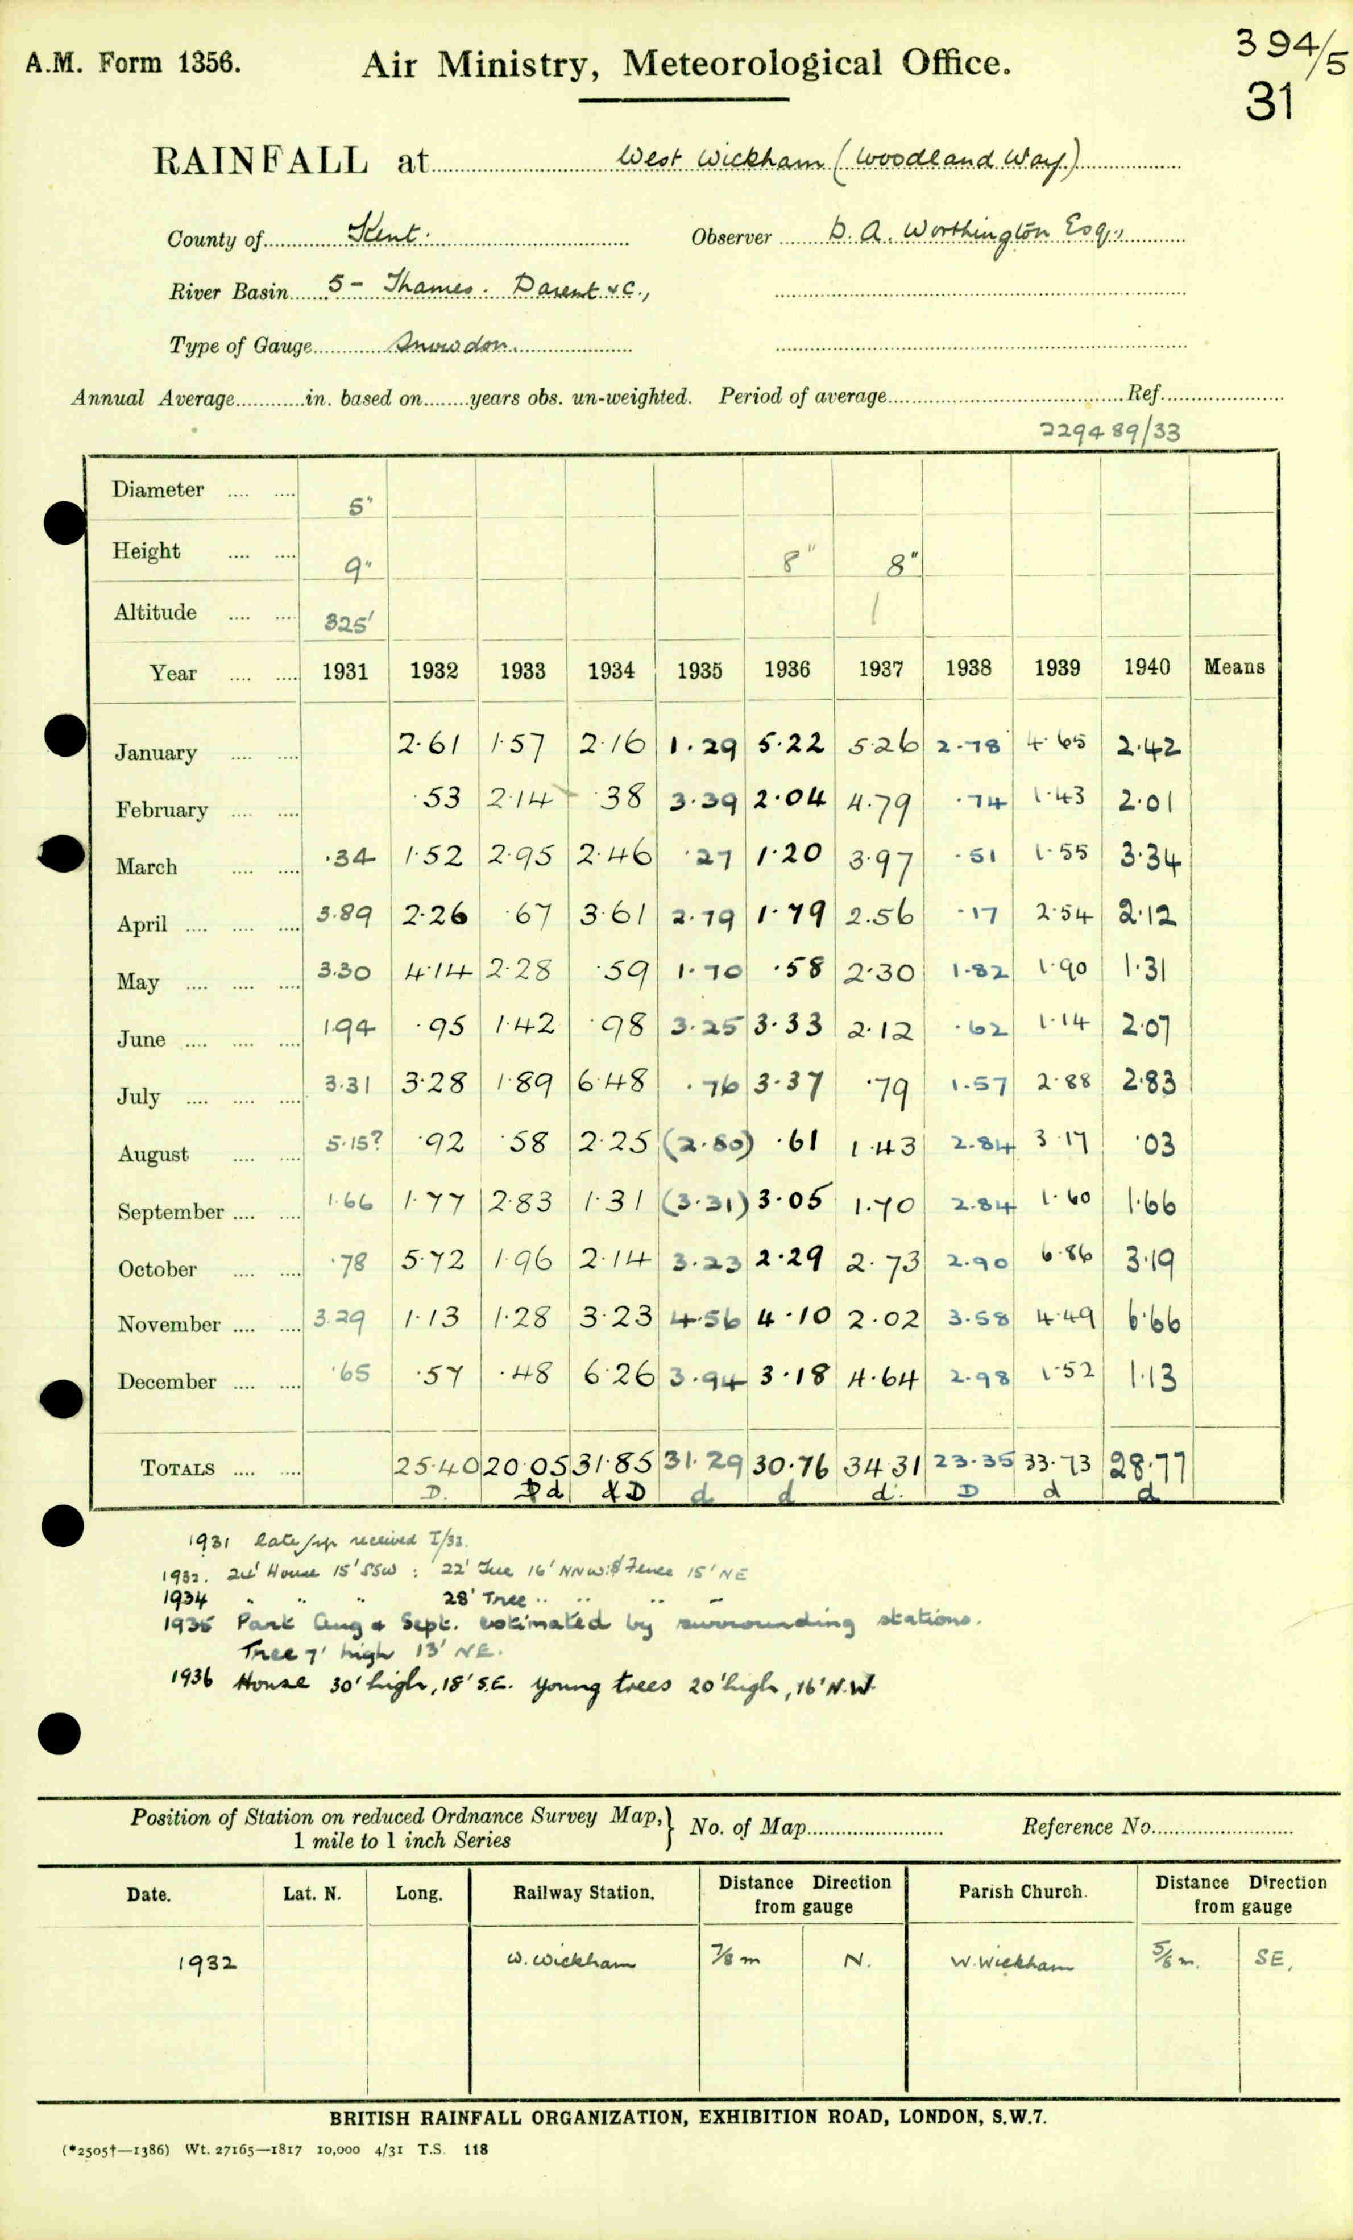 A.M. Form 1356.
Air Ministry, Meteorological Office.
394/5
31
RAINFALL at West Wickham (Woodland Way)
County of Kent. Observer D. A. Worthington Esq.,
River Basin 5 - Thames. Darent &c.,
Type of Gauge Snowdon.
Annual Average in. based on years obs. un-weighted. Period of average Ref.
229489/33
Diameter 5"
Height 9" 8" 8"
Altitude 325'
Year 1931 1932 1933 1934 1935 1936 1937 1938 1939 1940 Means
January 2.61 1.57 2.16 1.29 5.22 5.26 2.78 4.65 2.42
February .53 2.14 .38 3.39 2.04 4.79 .74 1.43 2.01
March .34 1.52 2.95 2.46 .27 1.20 3.97 .51 1.55 3.34
April 3.89 2.26 .67 3.61 2.79 1.79 2.56 .17 2.54 2.12
May 3.30 4.14 2.28 .59 1.70 .58 2.30 1.82 1.90 1.31
June 1.94 .95 1.42 .98 3.25 3.33 2.12 .62 1.14 2.07
July 3.31 3.28 1.89 6.48 .76 3.37 .79 1.57 2.88 2.83
August 5.15? .92 .58 2.25 (2.80) .61 1.43 2.84 3.17 .03
September 1.66 1.77 2.83 1.31 (3.31) 3.05 1.70 2.84 1.60 1.66
October .78 5.72 1.96 2.14 3.23 2.29 2.73 2.90 6.86 3.19
November 3.29 1.13 1.28 3.23 4.56 4.10 2.02 3.58 4.49 6.66
December .65 .57 .48 6.26 3.94 3.18 4.64 2.98 1.52 1.13
TOTALS 25.40 20.05 31.85 31.29 30.76 34.31 23.35 33.73 28.77
D. d D d d d. D d d
1931 late received I/33.
1932. 24' House 15' SSW : 22' Tree 16' NNW: Fence 15' NE
1934 " " " 28' Tree " " " "
1935 Part Aug & Sept. estimated by surrounding stations.
Tree 7' high 13' NE.
1936 House 30' high, 18' S.E. Young trees 20' high, 16' N.W.
Position of Station on reduced Ordnance Survey Map, 1 mile to 1 inch Series } No. of Map Reference No.
Date. Lat. N. Long. Railway Station. Distance Direction from gauge Parish Church. Distance Direction from gauge
1932 W. Wickham 7/8 m N. W. Wickham 5/6 m. SE.
BRITISH RAINFALL ORGANIZATION, EXHIBITION ROAD, LONDON, S.W.7.
(*2505†—1386) Wt. 27165—1817 10,000 4/31 T.S. 118